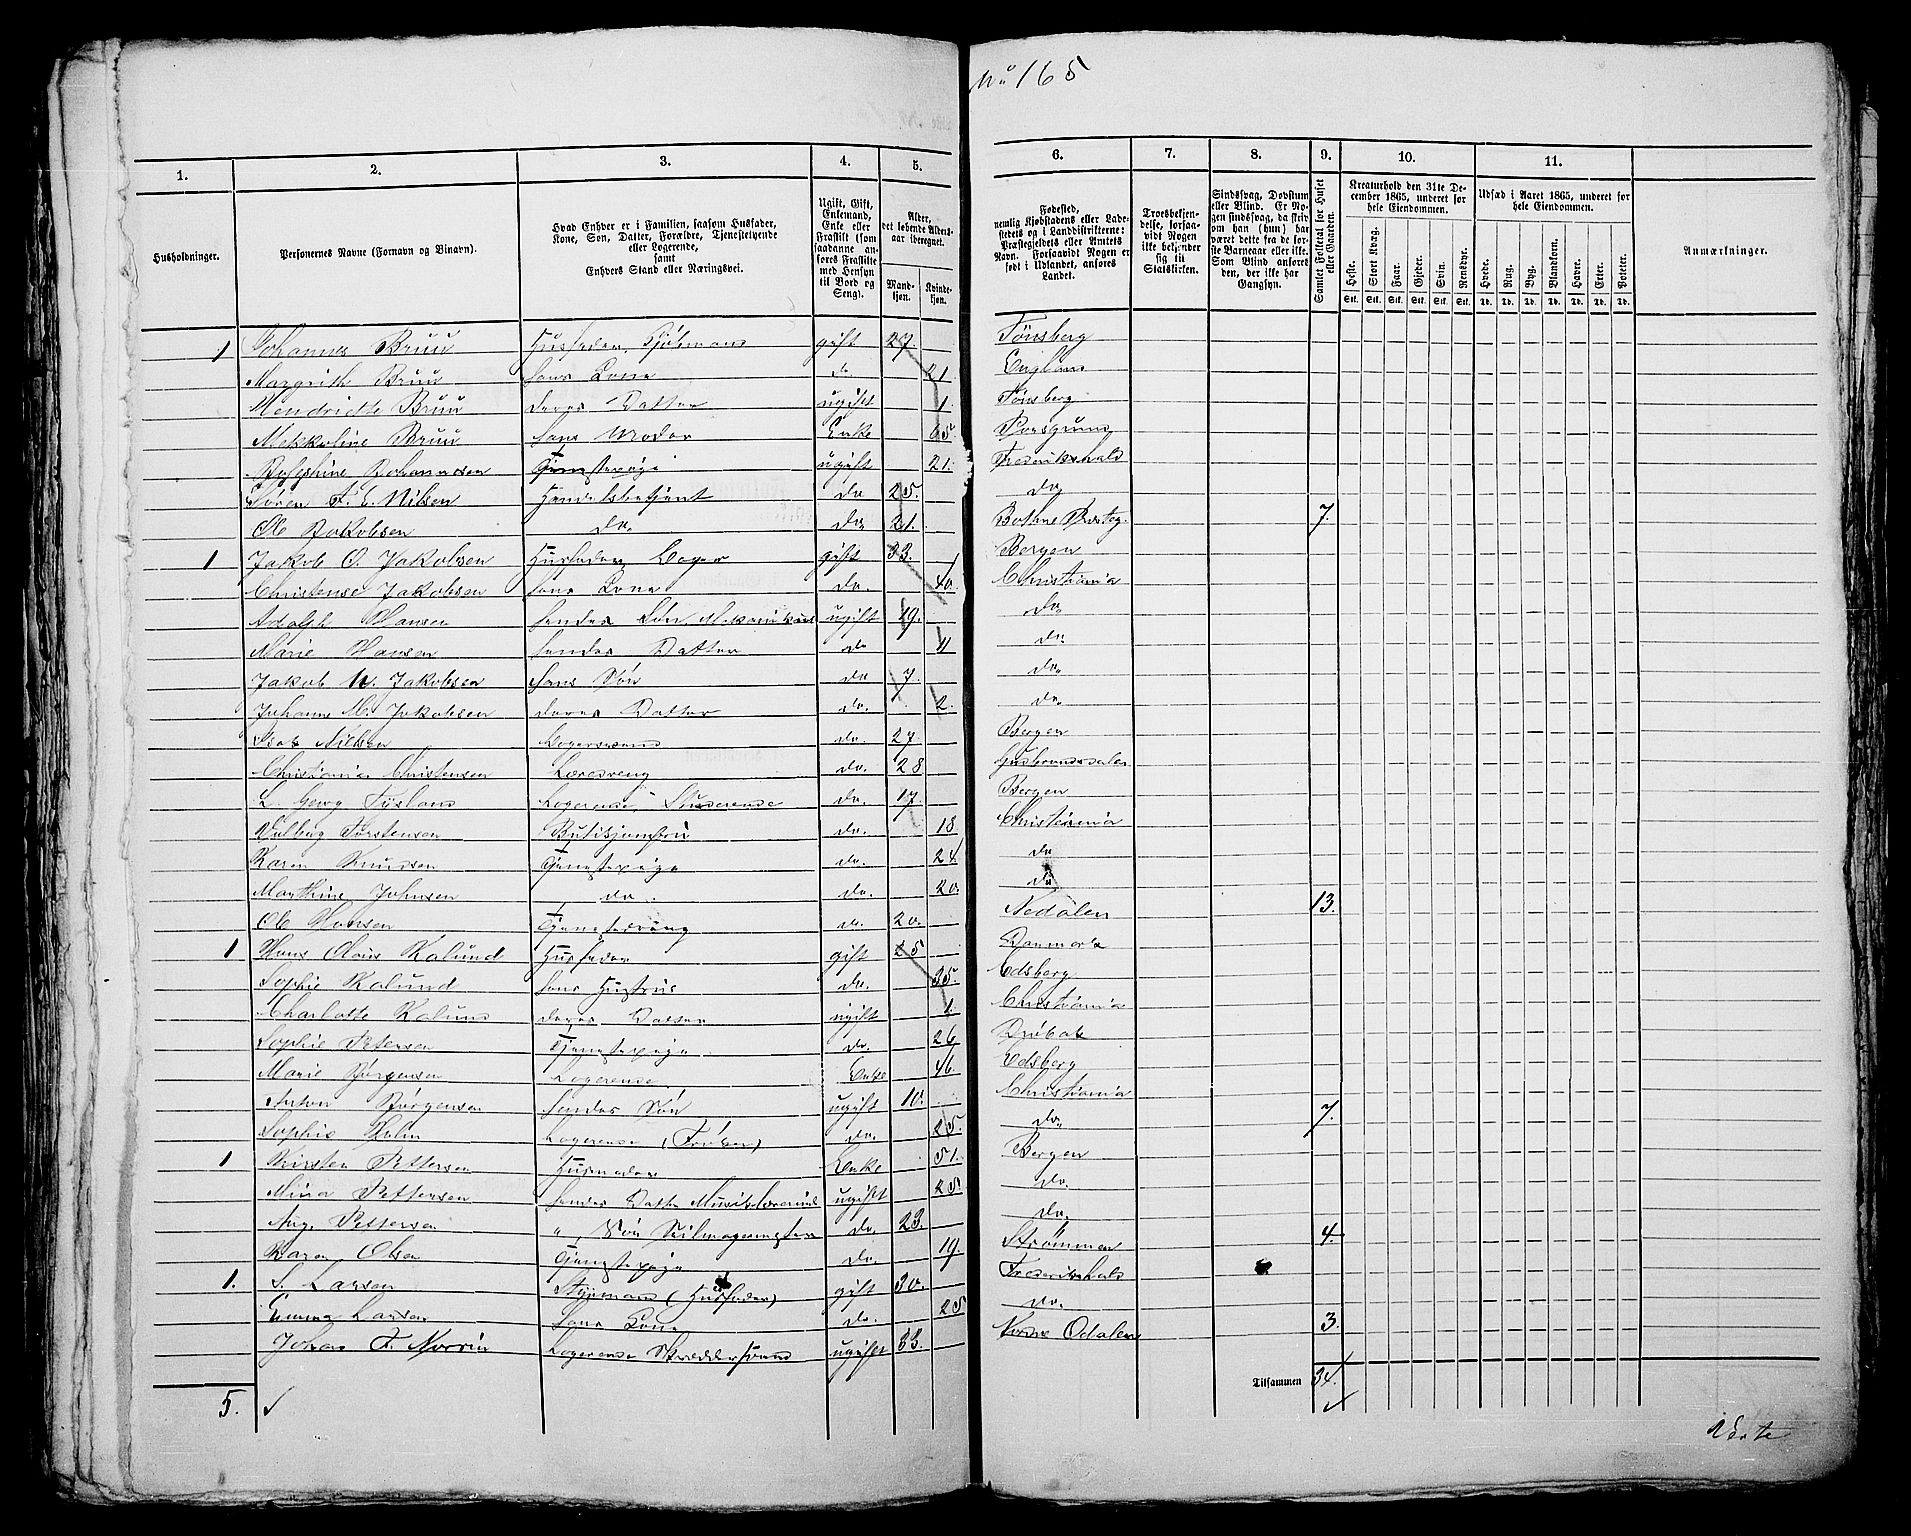 No 165
1. 2. 3. 4. 5. 6. 7. 8. 9. 10. 11.
Husholdninger.
Personernes Navne (Fornavn og Binavn).
Hvad Enhver er i Familien, saasom Husfader, Kone, Søn, Datter, Forældre, Tjenestetyende eller Logerende, samt Enhvers Stand eller Næringsvei.
Ugift, Gift, Enkemand, Enke eller Fraskilt (som saadanne anføres Fraskilte med Hensyn til Bord og Seng).
Alder, det løbende Alders-aar iberegnet.
Mandkjøn. Kvindekjøn.
Fødested, nemlig Kjøbstadens eller Ladestedets og i Landdistrikterne: Præstegjeldets eller Amtets Navn. Forsaavidt Nogen er født i Udlandet, anføres Landet.
Troesbekjendelse, forsaavidt Nogen ikke bekjender sig til Statskirken.
Sindssvag, Døvstum eller Blind. Er Nogen sindssvag, da skrives om han (hun) har været dette fra de første Barneaar eller ikke. Som Blind anføres den, der ikke har Gangsyn.
Samlet Folketal for Huset eller Gaarden.
Kreaturhold den 31te December 1865, underet for hele Eiendommen.
Heste. Stort Kvæg. Faar. Gjeder. Svin. Rensdyr.
Stk. Stk. Stk. Stk. Stk. Stk.
Udsæd i Aaret 1865, underet for hele Eiendommen.
Hvede. Rug. Byg. Blandkorn. Havre. Erter. Poteter.
Td. Td. Td. Td. Td. Td. Td.
Anmærkninger.
1 Johannes Bruu Husfader, gift 27. Tønsberg
Margrith Bruu hans Kone do. 21. England
Hendriette Bruu deres Datter ugift 1. Tønsberg
Bruu hans Moder Enke 65. Porsgrund
Josephine Johannesen Tjenestepige ugift 21. Frederikshald
Søren F. E. Nilsen Handelsbetjent do 25. do
Ole Jakobsen do. do 21. Bothne 7.
1 Jakob O. Jakobsen Husfader, gift 33. Bergen
Christense Jakobsen hans Kone do. 40. Christiania
Adolph Hansen hendes Søn ugift 19. do
Marie Hansen hendes Datter do 11 do.
Jakob W. Jakobsen hans Søn do 7. do
Johanne M. Jakobsen deres Datter do. 2. do
Nielsen do. 27 Bergen
Christensen do. 28 Gudbrandsdalen
L. Georg Logerende, Studerende do. 17. Bergen
Valborg Torstensen do. 18. Christiania
Karen Knudsen Tjenestepige do. 24. do
Marthine Johnsen do. do. 20. do
Ole Hansen Tjenestedreng do. 20. 13.
1 Hans Kalund Husfader gift 25 Danmark
Sophie Kalund hans Hustrue do. 35. Edsberg
Charlotte Kalund deres Datter ugift 1. Christiania
Sophie Petersen Tjenestepige do. 26 Drøbak
Marie Jørgensen Logerende Enke 46. Edsberg
Anton Jørgensen hendes Søn ugift 10. Christiania
Sophie Holm Logerende do. 25. do. 7.
1 Kirsten Pettersen Husmoder Enke 51. Bergen
Mina Pettersen hendes Datter ugift 25. do.
Aug. Pettersen " Søn Seilmagermester do. 23. do.
Karen Olsen Tjenestepige do. 19. Strømmen 4.
1. S. Larsen Styrmand (Husfader) gift 30. Frederikshald
Emma Larsen hans Kone do. 25 do.
Johan F. Norin Logerende Skræddersvend ugift 33. Nordre Odalen 3.
5. Tilsammen 34.
Verte